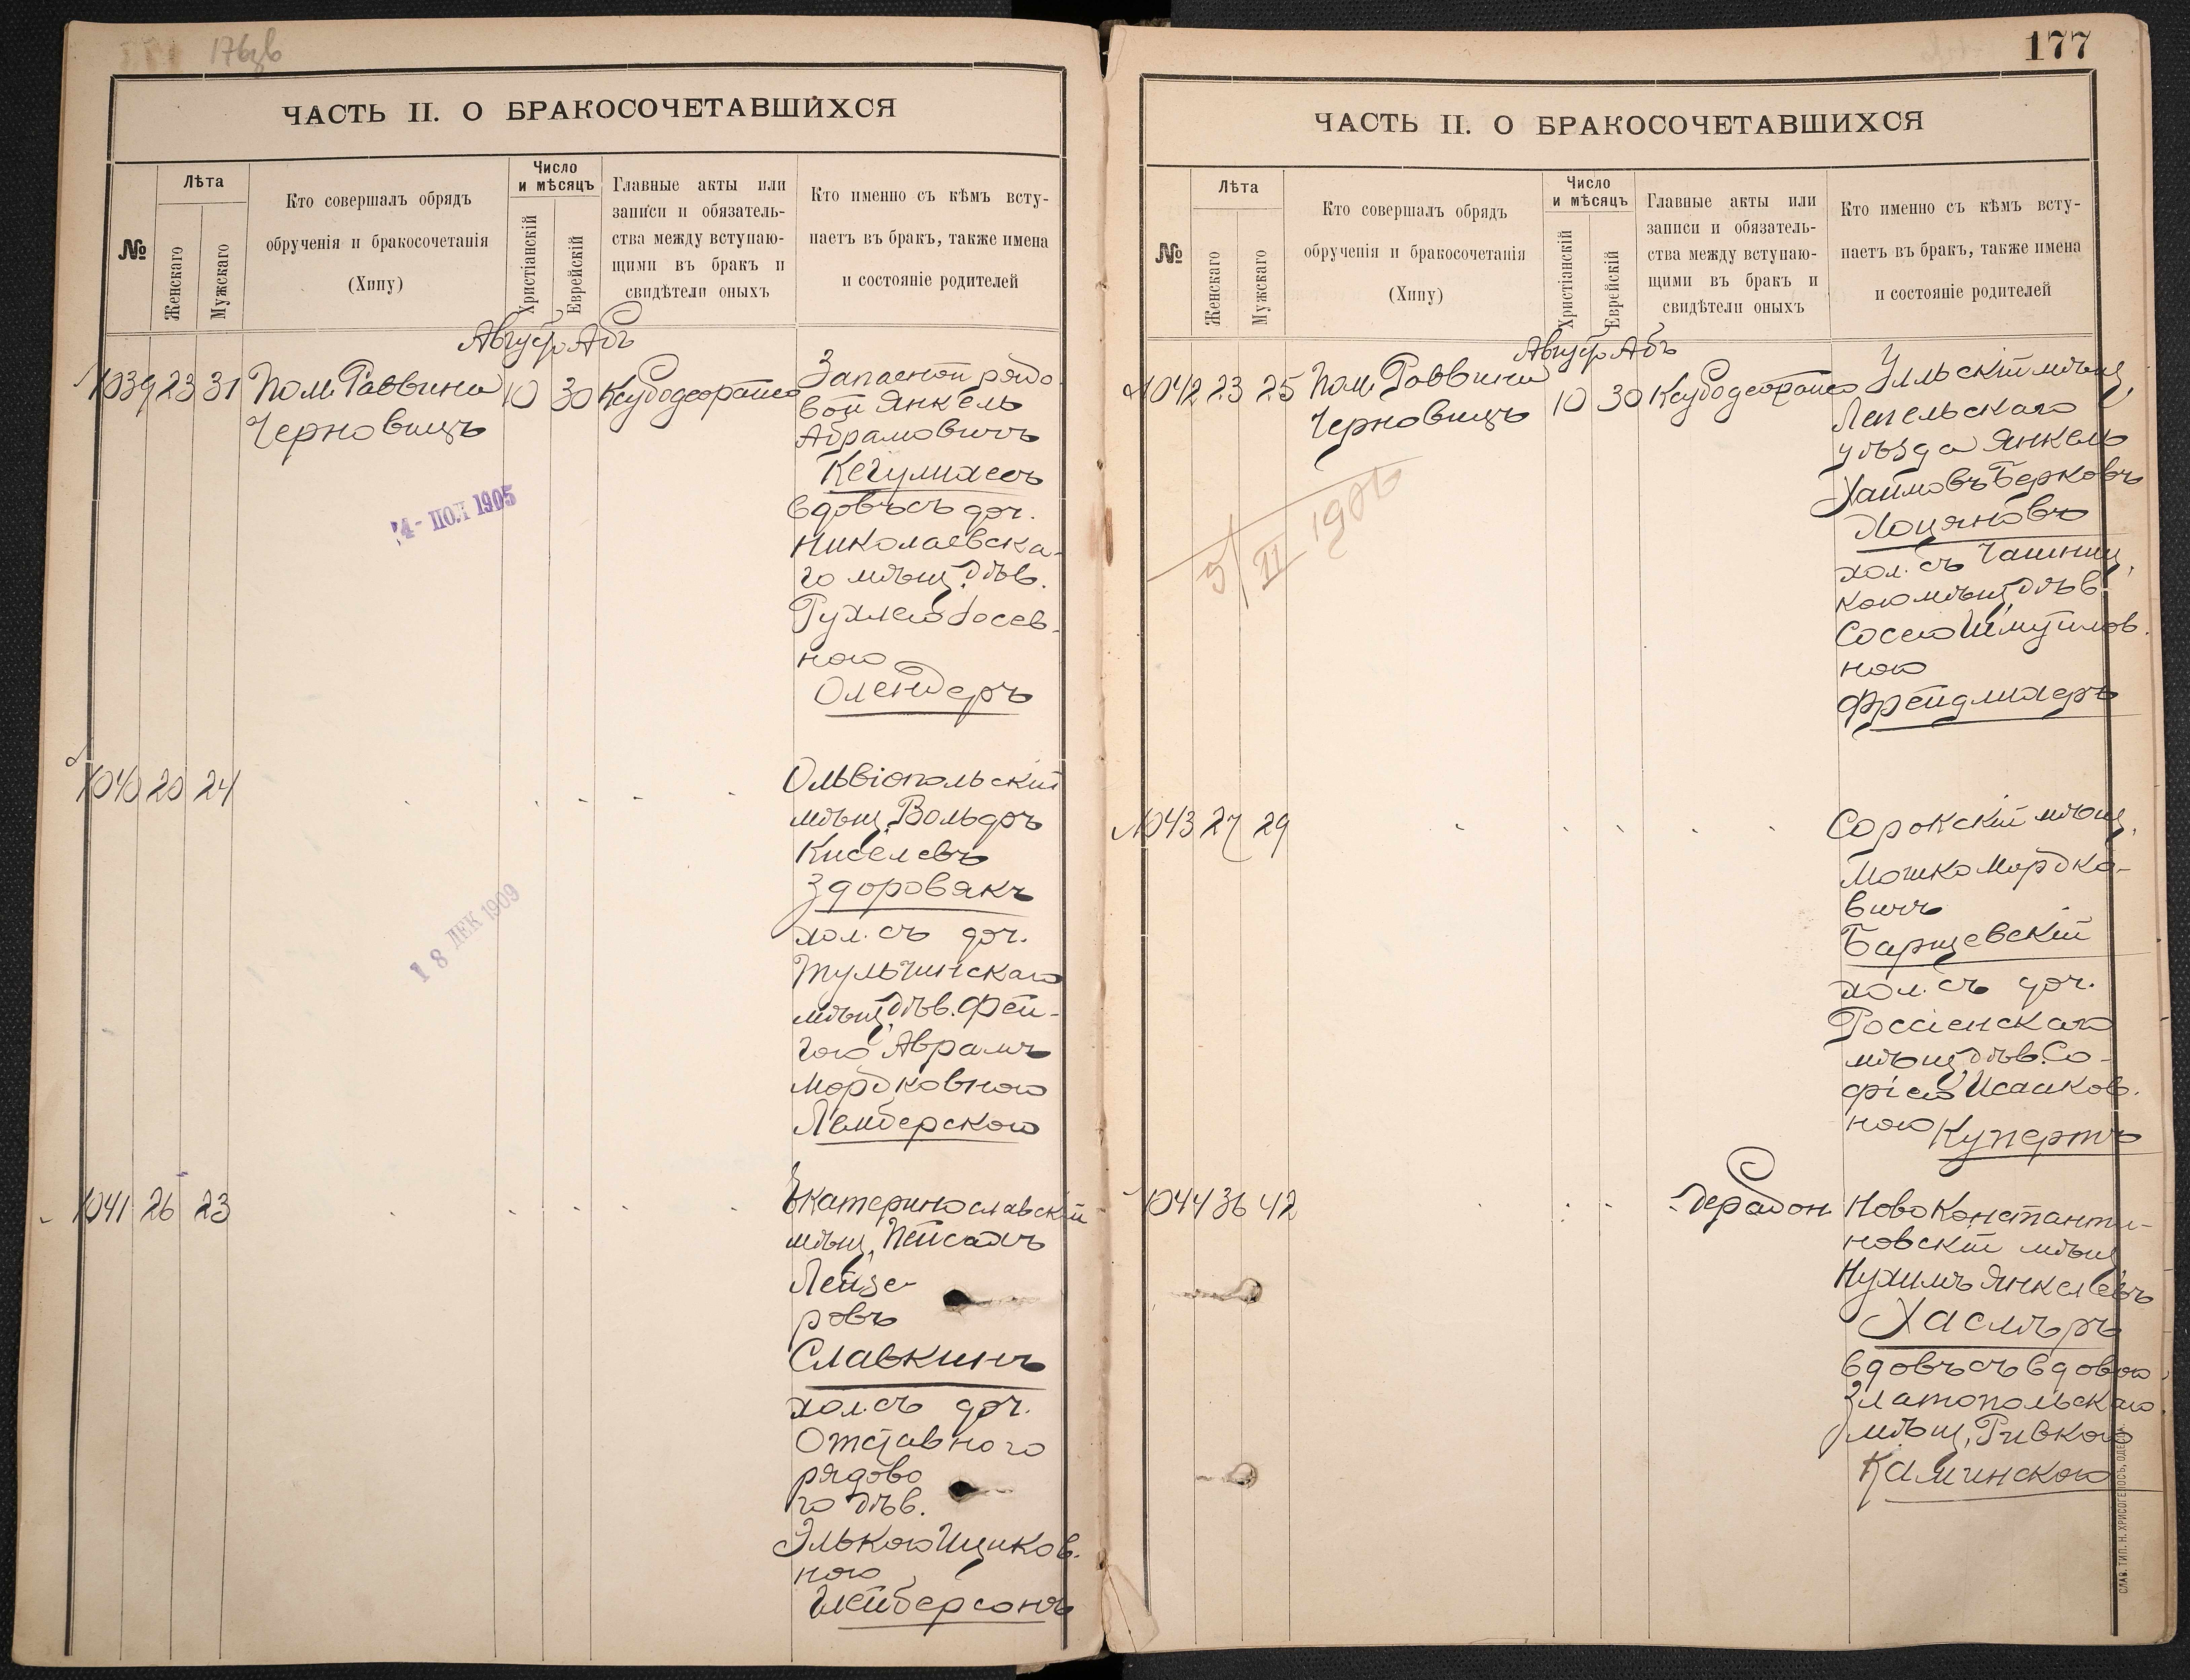 176об
ЧАСТЬ II. О БРАКОСОЧЕТАВШИХСЯ
№
Лѣта
Женскаго
Мужскаго
Кто совершалъ обрядъ
обрученія и бракосочетанія
(Хипу)
Число
и мѣсяцъ
Христіанскій
Еврейскій
Главные акты или
записи и обязатель-
ства между вступаю-
щими въ бракъ и
свидѣтели оныхъ
Кто именно съ кѣмъ всту-
паетъ въ бракъ, также имена
и состояніе родителей
Август Абъ
1039 23 31 Пом. Раввина 10 30
Черновицъ
Запасной рядо
вой Янкель
Абрамовичъ
вдовъ съ доч.
Николаевска-
го мѣщ. дѣв.
Рухлею Іосев-
ною
Олендеръ
4- ПОЛ 1905
1040 20 24
Ольвіопольскій
мѣщ. Вольфъ
Киселевъ
Здоровякъ
хол. съ доч.
Тульчинскаго
мѣщ. дѣв. Фей-
гою Аврамъ
Мордковною
Лемберскою
18 ДЕК 1909
1041 26 23
Екатеринославскій
мѣщ. Пейсахъ
Лейзе-
ровъ
Славкинъ
хол. съ доч.
Отставного
рядово
го дѣв.
Элькою Ициков-
ною
Глейберсонъ
177
ЧАСТЬ II. О БРАКОСОЧЕТАВШИХСЯ
№
Лѣта
Женскаго
Мужскаго
Кто совершалъ обрядъ
обрученія и бракосочетанія
(Хипу)
Число
и мѣсяцъ
Христіанскій
Еврейскій
Главные акты или
записи и обязатель-
ства между вступаю-
щими въ бракъ и
свидѣтели оныхъ
Кто именно съ кѣмъ всту-
паетъ въ бракъ, также имена
и состояніе родителей
Август Абъ
1042 23 25 Пом. Раввина 10 30
Черновицъ
Ульскій мѣщ.
Лепельскаго
уѣзда Янкель
Хаимовъ Берковъ
хол. съ Чашниц.
кою мѣщ. дѣв.
Сосею Шмуйлов.
ною
Фрейдлихеръ
5/II 1906
1043 27 29
Сорокскій мѣщ.
Мошко Мордко-
вичъ
Барщевскій
хол. съ доч.
Россіенскаго
мѣщ. дѣв. Со-
фіею Исааков.
ною Купертъ
1044 36 42
Дерабон
Ново Константи-
новскій мѣщ.
Нухимъ Янкелевъ
Хасмѣръ
вдовъ съ вдовою
Златопольскаго
мѣщ. Ривкою
Каминскою
СЛАВ. ТИП. Н. ХРИСОГЕЛОСЪ, ОДЕССА.